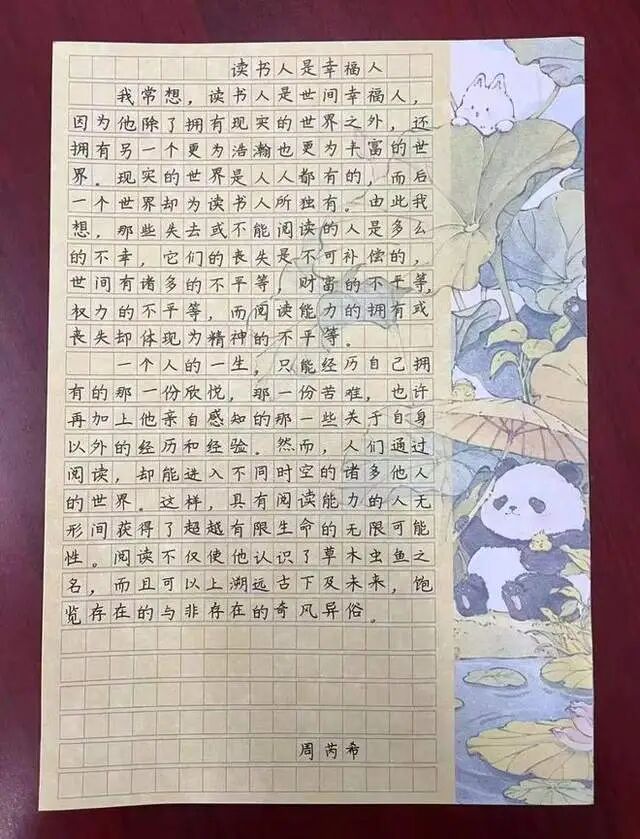 读书人是幸福人
我常想，读书人是世间幸福人，
因为他除了拥有现实的世界之外，还
拥有另一个更为浩瀚也更为丰富的世
界。现实的世界是人人都有的，而后
一个世界却为读书人所独有。由此我
想，那些失去或不能阅读的人是多么
的不幸，它们的丧失是不可补偿的，
世间有诸多的不平等，财富的不平等，
权力的不平等，而阅读能力的拥有或
丧失却体现为精神的不平等。
一个人的一生，只能经历自己拥
有的那一份欣悦，那一份苦难，也许
再加上他亲自感知的那一些关于自身
以外的经历和经验。然而，人们通过
阅读，却能进入不同时空的诸多他人
的世界。这样，具有阅读能力的人无
形间获得了超越有限生命的无限可能
性。阅读不仅使他认识了草木虫鱼之
名，而且可以上溯远古下及未来，饱
览存在的与非存在的奇风异俗。
周芮希